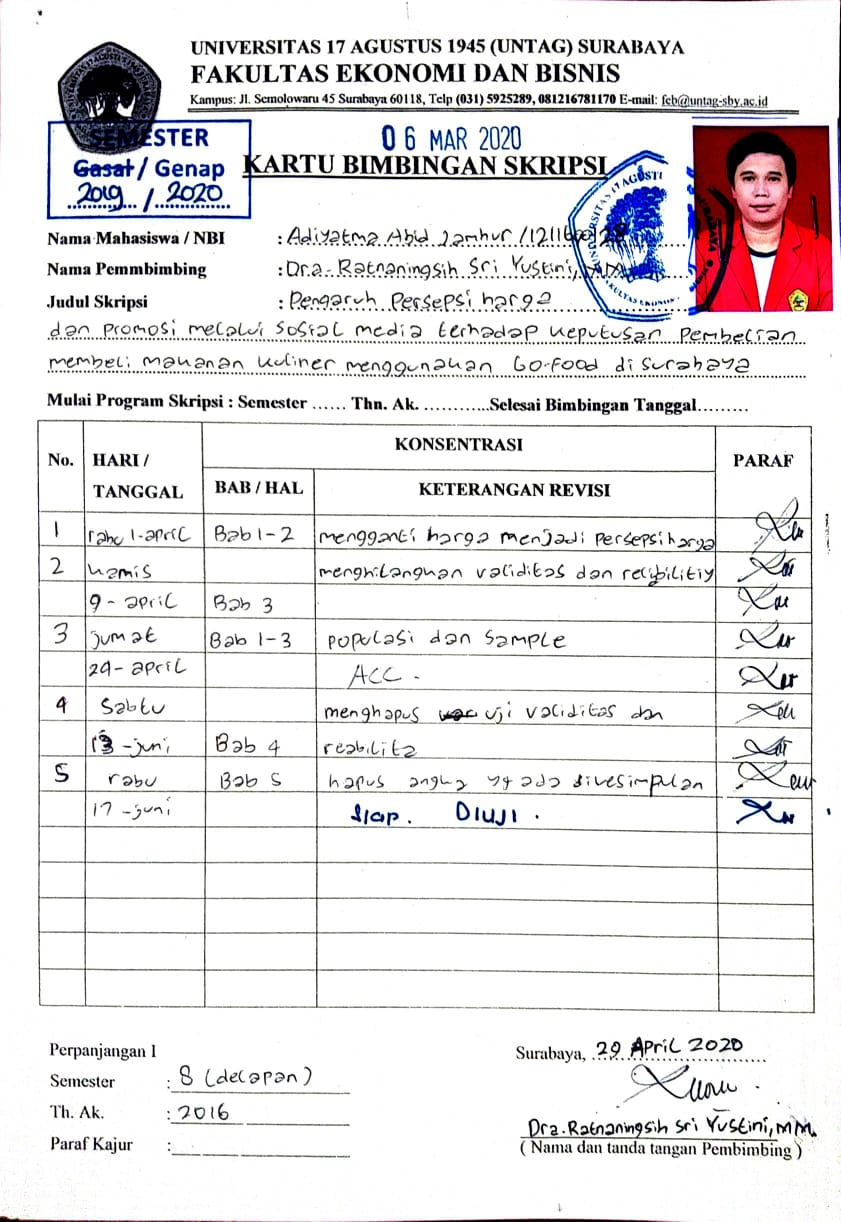 UNIVERSITAS 17 AGUSTUS 1945 (UNTAG) SURABAYA
FAKULTAS EKONOMI DAN BISNIS
Kampus: Jl. Semolowaru 45 Surabaya 60118, Telp (031) 5925289, 081216781170 E-mail: feb@untag-sby.ac.id
SEMESTER
Gasat / Genap
2019 / 2020
06 MAR 2020
KARTU BIMBINGAN SKRIPSI
Nama Mahasiswa / NBI : Adiyatma Abid Jamhur /
Nama Pemmbimbing : Dra. Ratnaningsih Sri Yustini, MM
Judul Skripsi : Pengaruh Persepsi harga
dan promosi melalui sosial media terhadap keputusan pembelian
membeli makanan kuliner menggunakan Go-Food di surabaya
Mulai Program Skripsi : Semester ...... Thn. Ak. ............Selesai Bimbingan Tanggal.........
No. HARI / TANGGAL KONSENTRASI PARAF
BAB / HAL KETERANGAN REVISI
1 rabu 1-april Bab 1-2 mengganti harga menjadi persepsi harga
2 kamis menghilangkan validitas dan
9 - april Bab 3
3 jumat Bab 1-3 populasi dan sample
24 - april ACC.
4 Sabtu menghapus uji validitas dan
13 - juni Bab 4 reabilita
5 rabu Bab 5 hapus angka yg ada dikesimpulan
17 - juni Siap. Diuji.
Perpanjangan I
Surabaya, 29 April 2020
Semester : 8 (delapan)
Th. Ak. : 2016
Paraf Kajur :
Dra. Ratnaningsih Sri Yustini, MM.
( Nama dan tanda tangan Pembimbing )